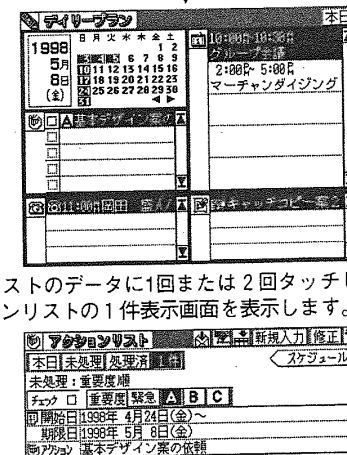 デイリープラン 本日
1998
5月
8日
(金)
日 月 火 水 木 金 土
1 2
3 4 5 6 7 8 9
10 11 12 13 14 15 16
17 18 19 20 21 22 23
24 25 26 27 28 29 30
31
10:00 10:30
グループ会議
2:00 5:00
マーチャンダイジング
A 基本デザイン案の
11:00
キャッチコピー案
ストのデータに1回または2回タッチし
ンリストの1件表示画面を表示します。
アクションリスト 新規入力 修正
本日 未処理 処理済 1件 スケジュール
未処理:重要度順
チェック 重要度 緊急 A B C
開始日 1998年 4月24日(金)~
期限日 1998年 5月 8日(金)
アクション 基本デザイン案の依頼